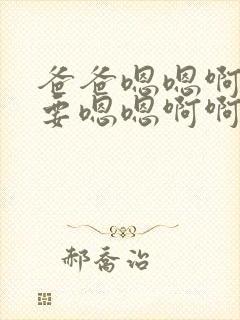 爸爸嗯嗯啊
要嗯嗯啊啊
郝乔治